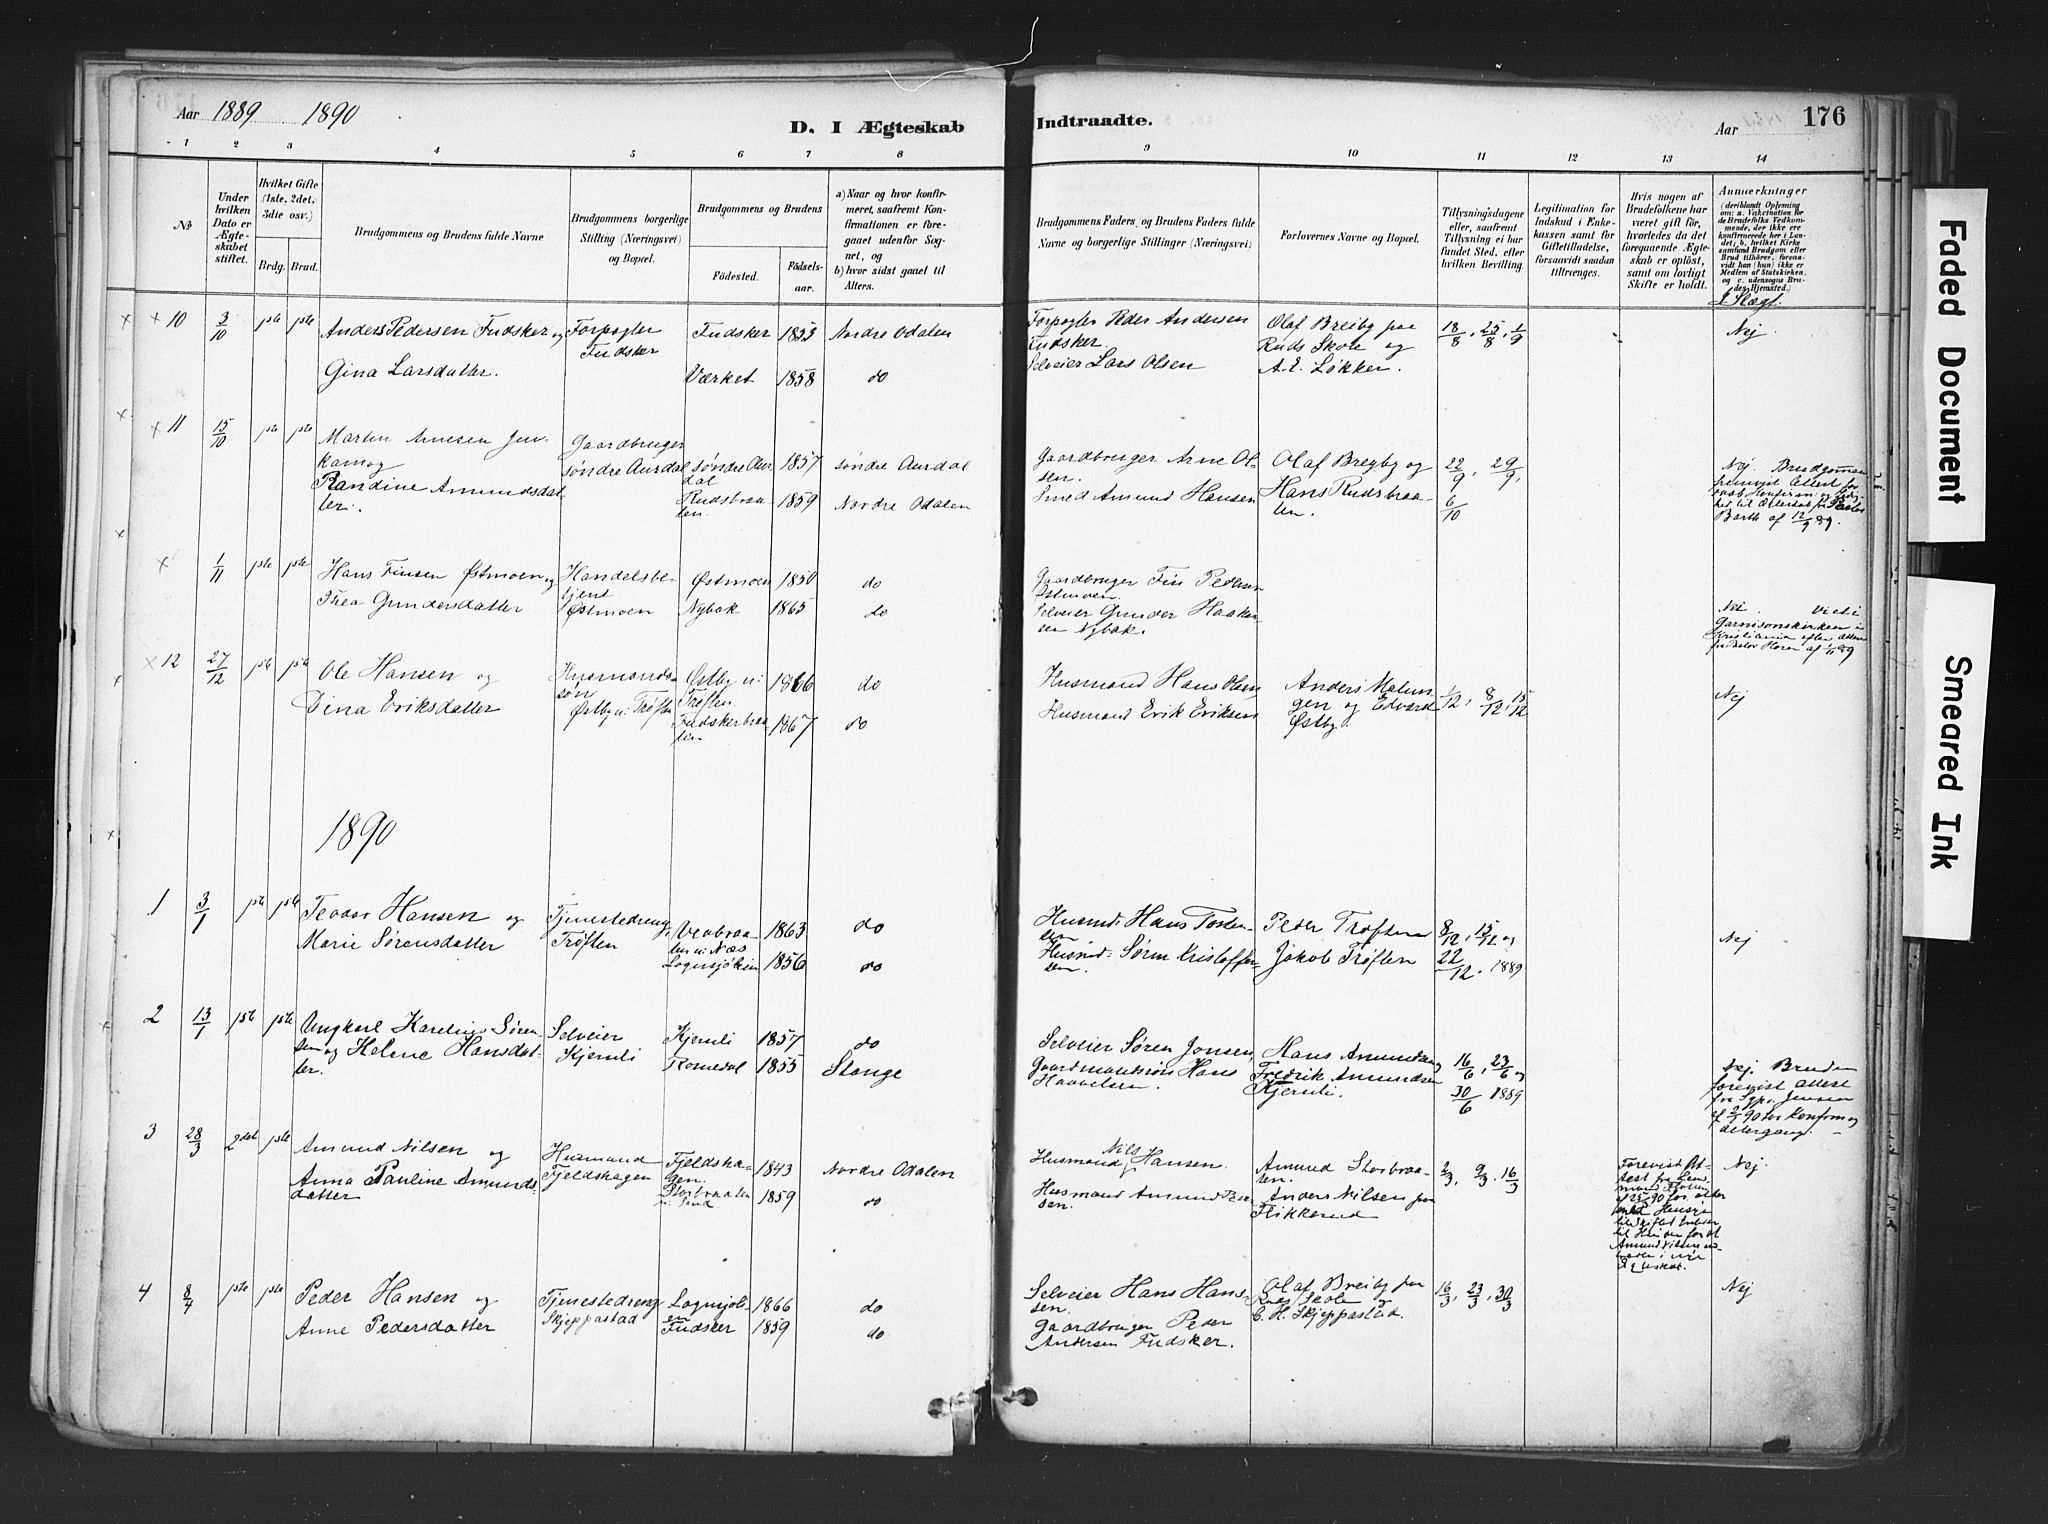 Aar 1889 1890
D. I Ægteskab
Indtraadte.
Aar
176
1 2 3 4 5 6 7 8
9 10 11 12 13 14
No
Under hvilken Dato er Ægteskabet stiftet.
Hvilket Gifte (1ste, 2det, 3die osv.)
Brdg. Brud.
Brudgommens og Brudens fulde Navne
Brudgommens borgerlige Stilling (Næringsvei) og Bopæl.
Brudgommens og Brudens
Fødested.
Fødselsaar.
a) Naar og hvor konfirmeret, saafremt Konfirmationen er foregaaet udenfor Sognet, og
b) hvor sidst gaaet til Alters.
Brudgommens Faders, og Brudens Faders fulde Navne og borgerlige Stillinger (Næringsvei)
Forlovernes Navne og Bopæl.
Tillysningsdagene eller, saafremt Tillysning ei har fundet Sted, efter hvilken Bevilling.
Legitimation for Indskud i Enkekassen samt for Giftetilladelse, forsaavidt saadan tiltrænges.
Hvis nogen af Brudefolkene har været gift før, hvorledes da det foregaaende Ægteskab er opløst, samt om lovligt Skifte er holdt.
Anmærkninger
(deriblandt Oplysning om: a. Vakcination for de Brudefolks Vedkommende, der ikke ere konfirmerede her i Landet; b. hvilket Kirkesamfund Brudgom eller Brud tilhører, forsaavidt han (hun) ikke er Medlem af Statskirken, og c. udensogns Brudes Hjemsted.)
I Slægt.
10 3/10 1ste 1ste Anders Pedersen Fudsker og
Gina Larsdatter.
Forpagter
Fudsker
Fudsker 1853 Nordre Odalen
Værket 1858 do
Forpagter Peder Andersen
Fudsker
Selveier Lars Olsen
Olaf Breiby paa
Ruds Skole og
A. E. Løkker.
18/8, 25/8, 1/9
Nej
11 15/10 1ste 1ste Martin Arnesen
Randine Amundsdatter.
Gaardbruger
søndre Aurdal
søndre Aurdal 1857 søndre Aurdal
Rudsbraaten 1859 Nordre Odalen
Gaardbruger Arne Olsen.
Smed Amund Hansen
Olaf Breiby og
Hans Rudsbraaten.
22/9, 29/9,
6/10
Nej. Brudgommen
Barth af 12/9 89.
1/11 1ste 1ste Hans Finsen Østmoen og
Thea Gundersdatter
Handelsbetjent
Østmoen
Østmoen 1850 do
Nybak 1865 do
Gaardbruger Fin Pedersen
Østmoen.
Selveier Gunder Haakensen
Nybak.
Nej. Viet i
Garnisonskirken i
Kristiania efter Attest
fra Pastor Horn af 1/11 89
12 27/12 1ste 1ste Ole Hansen og
Dina Eriksdatter
Husmandssøn
Østby u: Trøften
Østby u: Trøften 1866 do
Fudskerbraaten 1867 do
Husmand Hans Olsen
Husmand Erik Eriksen
Anders Malungen
og Edvard
Østby.
1/12, 8/12, 15/12
Nej
1890
1 3/1 1ste 1ste Teodor Hansen og
Marie Sørensdatter
Tjenestedreng
Trøften
1863 do
1856 do
Husmd: Hans Tostensen
Husmd: Søren Kristoffersen
Peder Trøften
Jakob Trøften
8/12, 15/12 og
22/12. 1889
Nej
2 13/1 1ste 1ste Ungkarl Karelius Sørensen
og Helene Hansdatter.
Selveier
Kjernli
Kjernli 1857 do
Romedal 1855 Stange
Selveier Søren Jonsen,
Gaardmandssøn Hans
Haavelsen.
Hans Amundsen og
Fredrik Amundsen
Kjernli.
16/6, 23/6 og
30/6 1889
Nej. Bruden
forevist Attest
fra Sgpr. Jensen
af 2/1 90 for Konfirm og
Altergang.
3 28/3 2det 1ste Amund Nilsen og
Anna Pauline Amundsdatter
Husmand
Fjeldshagen
Fjeldshagen. 1843 Nordre Odalen
Storbraaten
u: Sand 1859 do
Husmand Nils Hansen.
Husmand Amund Pedersen.
Amund Storbraaten.
Anders Nilsen paa
Flikkerud
2/3, 9/3. 16/3
Forevist Attest
Nej.
4 8/4 1ste 1ste Peder Hansen og
Anne Pedersdatter
Tjenestedreng
Skjeppastad
1866 do
Fudsker 1859 do
Selveier Hans Hansen.
Gaardbruger Peder
Andersen Fudsker.
Olaf Breiby paa
Ruds Skole og
C. H. Skjeppastad.
16/3, 23/3, 30/3
Nej
Faded Document
Smeared Ink